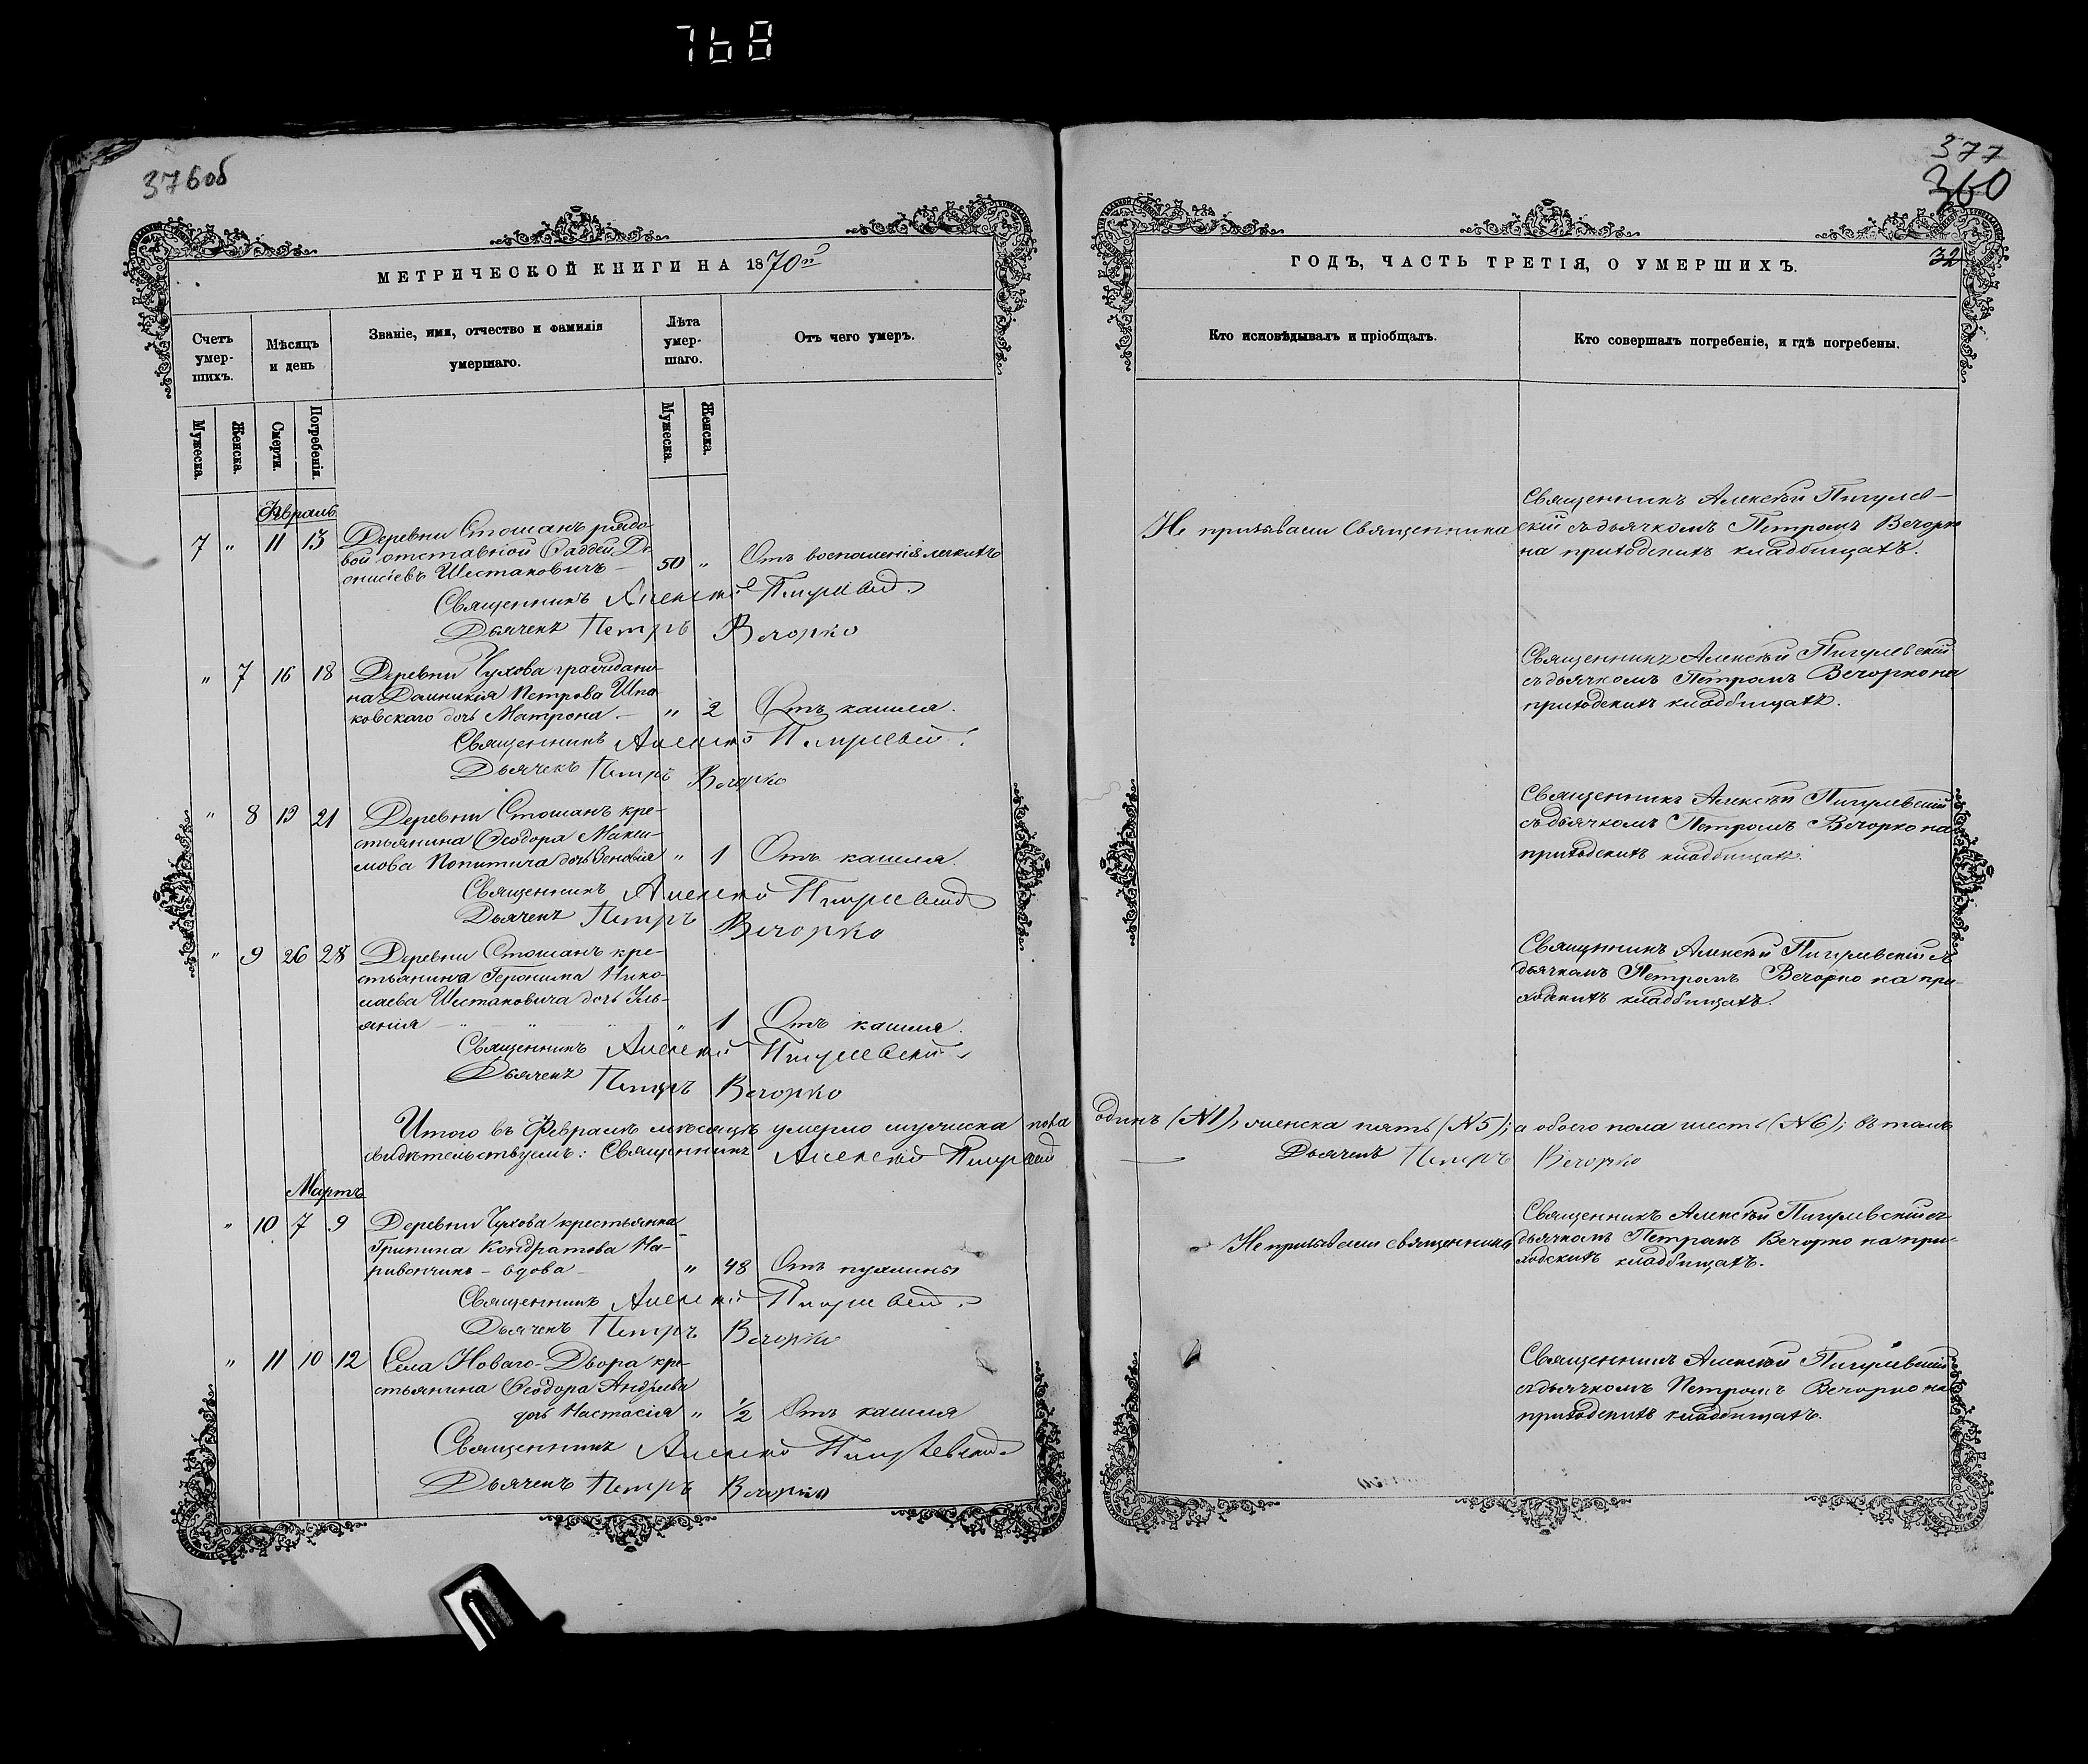 768
376об
МЕТРИЧЕСКОЙ КНИГИ НА 1870й
Счетъ умер-шихъ.
Мѣсяцъ и день
Званіе, имя, отчество и фамилія умершаго.
Лѣта умер-шаго.
Отъ чего умеръ.
Мужеска.
Женска.
Смерти.
Погребенія.
Мужеска.
Женска.
Февраль
7 " 11 13 Деревни Стошанъ рядо-
вой отставной Фаддей Ді-
онисіевъ Шестаковичъ — 50 " Отъ воспаленія легкихъ
Священникъ Алексѣй Пигулевскій
Дьячекъ Петръ Вечорко
" 7 16 18 Деревни Чухова граждани-
на Доминикія Петрова Шпа-
ковскаго дочь Матрона. — " 2 Отъ кашля.
Священникъ Алексѣй Пигулевскій
Дьячекъ Петръ Вечорко
" 8 19 21 Деревни Стошанъ кре-
стьянина Ѳеодора Макси-
мова Попитича дочь Зеновія " 1 Отъ кашля.
Священникъ Алексѣй Пигулевскій
Дьячекъ Петръ Вечорко
" 9 26 28 Деревни Стошанъ кре-
стьянина Геронима Нико-
лаева Шестаковича дочь Улья-
анія " 1 Отъ кашля.
Священникъ Алексѣй Пигулевскій
Дьячекъ Петръ Вечорко
Итого въ Февралѣ мѣсяцѣ умерло мужеска пола
свидѣтельствуемъ: Священникъ Алексѣй Пигулевскій
Мартъ
" 10 7 9 Деревни Чухова крестьянка
Грипина Кондратова На-
ривончикъ - вдова — " 48 Отъ пухлины
Священникъ Алексѣй Пигулевскій
Дьячекъ Петръ Вечорко
" 11 10 12 Села Новаго-Двора кре-
стьянина Ѳеодора Андреева
дочь Настасія " 1/2 Отъ кашля
Священникъ Алексѣй Пигулевскій
Дьячекъ Петръ Вечорко
377
360
32
ГОДЪ, ЧАСТЬ ТРЕТІЯ, О УМЕРШИХЪ.
Кто исповѣдывалъ и пріобщалъ.
Кто совершалъ погребеніе, и гдѣ погребены.
Не призывали Священника
Священникъ Алексѣй Пигулев-
скій съ дьячкомъ Петромъ Вечорко
на приходскихъ кладбищахъ.
Священникъ Алексѣй Пигулевскій
съ дьячкомъ Петромъ Вечорко на
приходскихъ кладбищахъ.
Священникъ Алексѣй Пигулевскій
съ дьячкомъ Петромъ Вечорко на
приходскихъ кладбищахъ.
Священникъ Алексѣй Пигулевскій съ
дьячкомъ Петромъ Вечорко на при-
ходскихъ кладбищахъ.
одинъ (№1), женска пять (№5); а обоего пола шесть (№6); въ томъ
Дьячекъ Петръ Вечорко
Не призывали священника
Священникъ Алексѣй Пигулевскій съ
дьячкомъ Петромъ Вечорко на при-
ходскихъ кладбищахъ.
Священникъ Алексѣй Пигулевскій
съ дьячкомъ Петромъ Вечорко на
приходскихъ кладбищахъ.